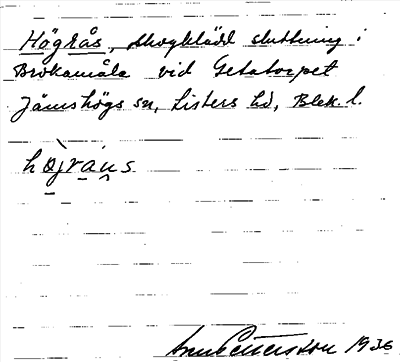 Högrås, skogklädd sluttning i
Brokamåla vid Getatorpet
Jämshögs sn, Listers hd, Blek. l.
højraus
1936